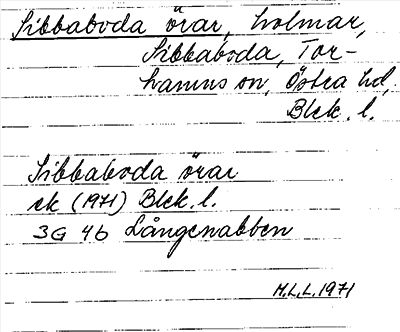 Sibbaboda örar, holmar,
Sibbaboda, Tor-
hamns sn, Östra hd,
Blek. l.
Sibbaboda örar
ek (1971) Blek. l.
3G 4b Långenabben
H.L.L. 1971